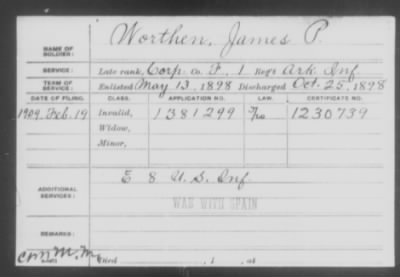 Worthen, James P.
NAME OF SOLDIER:
SERVICE: Late rank, Corp. Co. F, 1 Reg't Ark. Inf.
TERM OF SERVICE: Enlisted May 13, 1898 Discharged Oct. 25, 1898
DATE OF FILING. CLASS. APPLICATION NO. LAW. CERTIFICATE NO.
1909, Feb. 19 Invalid, 1381299 1230739
Widow,
Minor,
ADDITIONAL SERVICES: E 8 U.S. Inf.
WAR WITH SPAIN
REMARKS:
Died , 1 , at